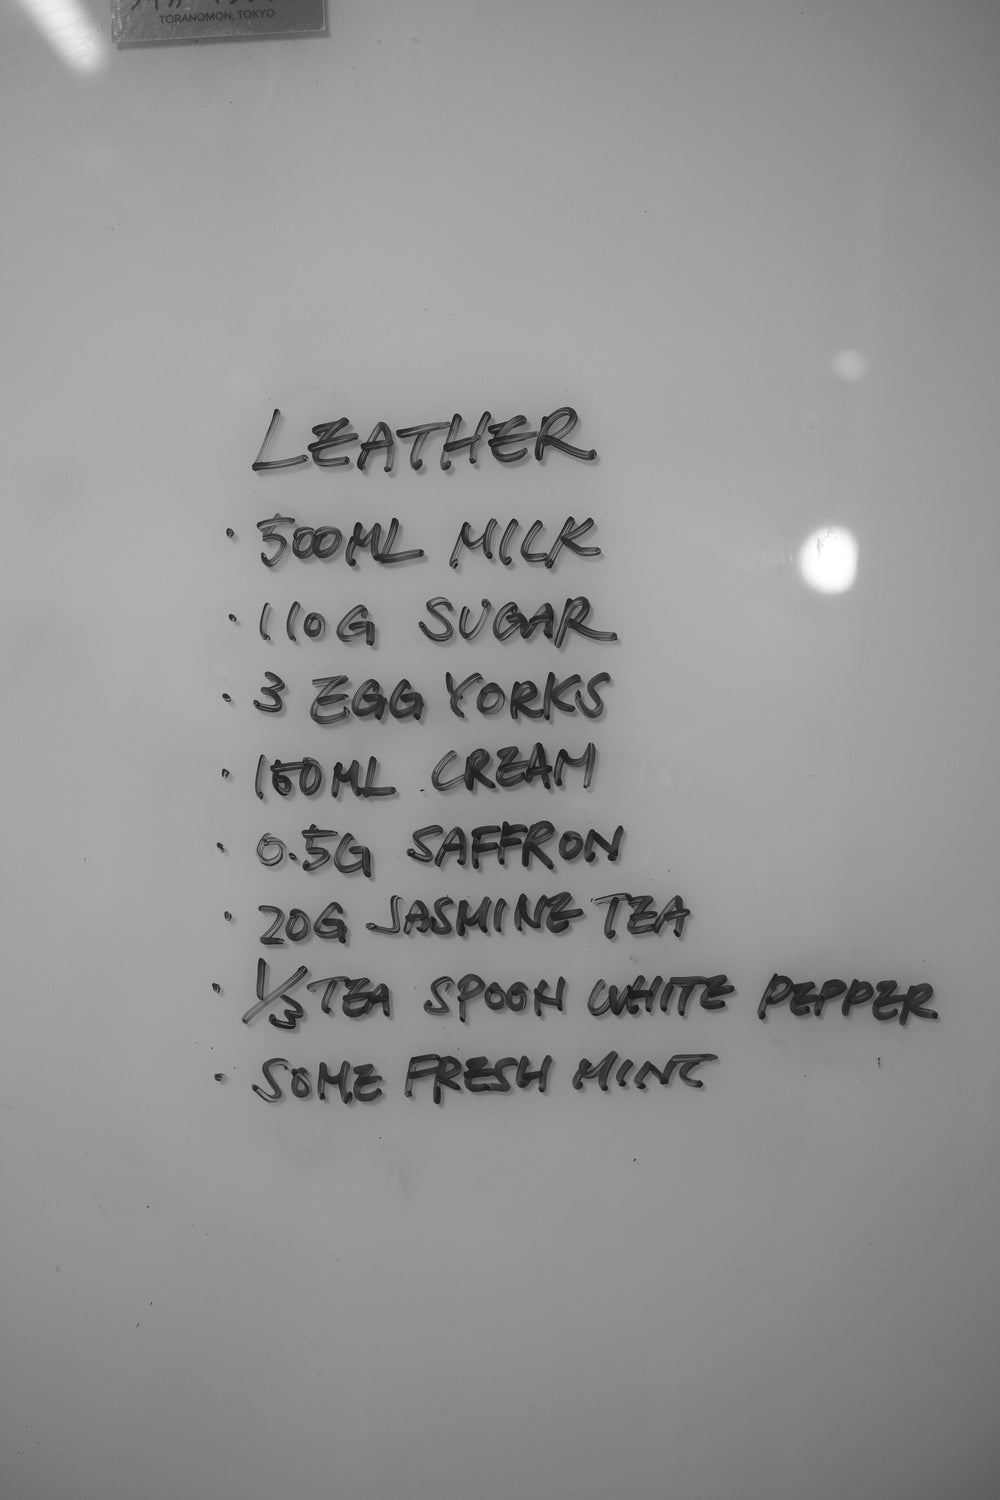 TORANOMON, TOKYO
LEATHER
• 500ML MILK
• 110G SUGAR
• 3 EGG YORKS
• 150ML CREAM
• 0.5G SAFFRON
• 20G JASMINE TEA
• 1/3 TEA SPOON WHITE PEPPER
• SOME FRESH MINT